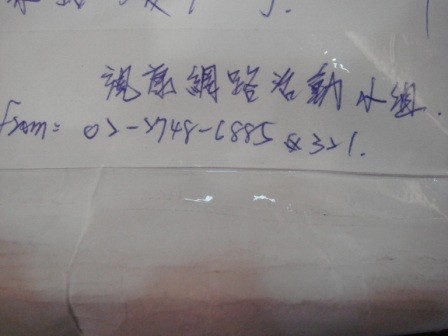 視原網路活動小組.
from: 02-2748-6885 & 321.